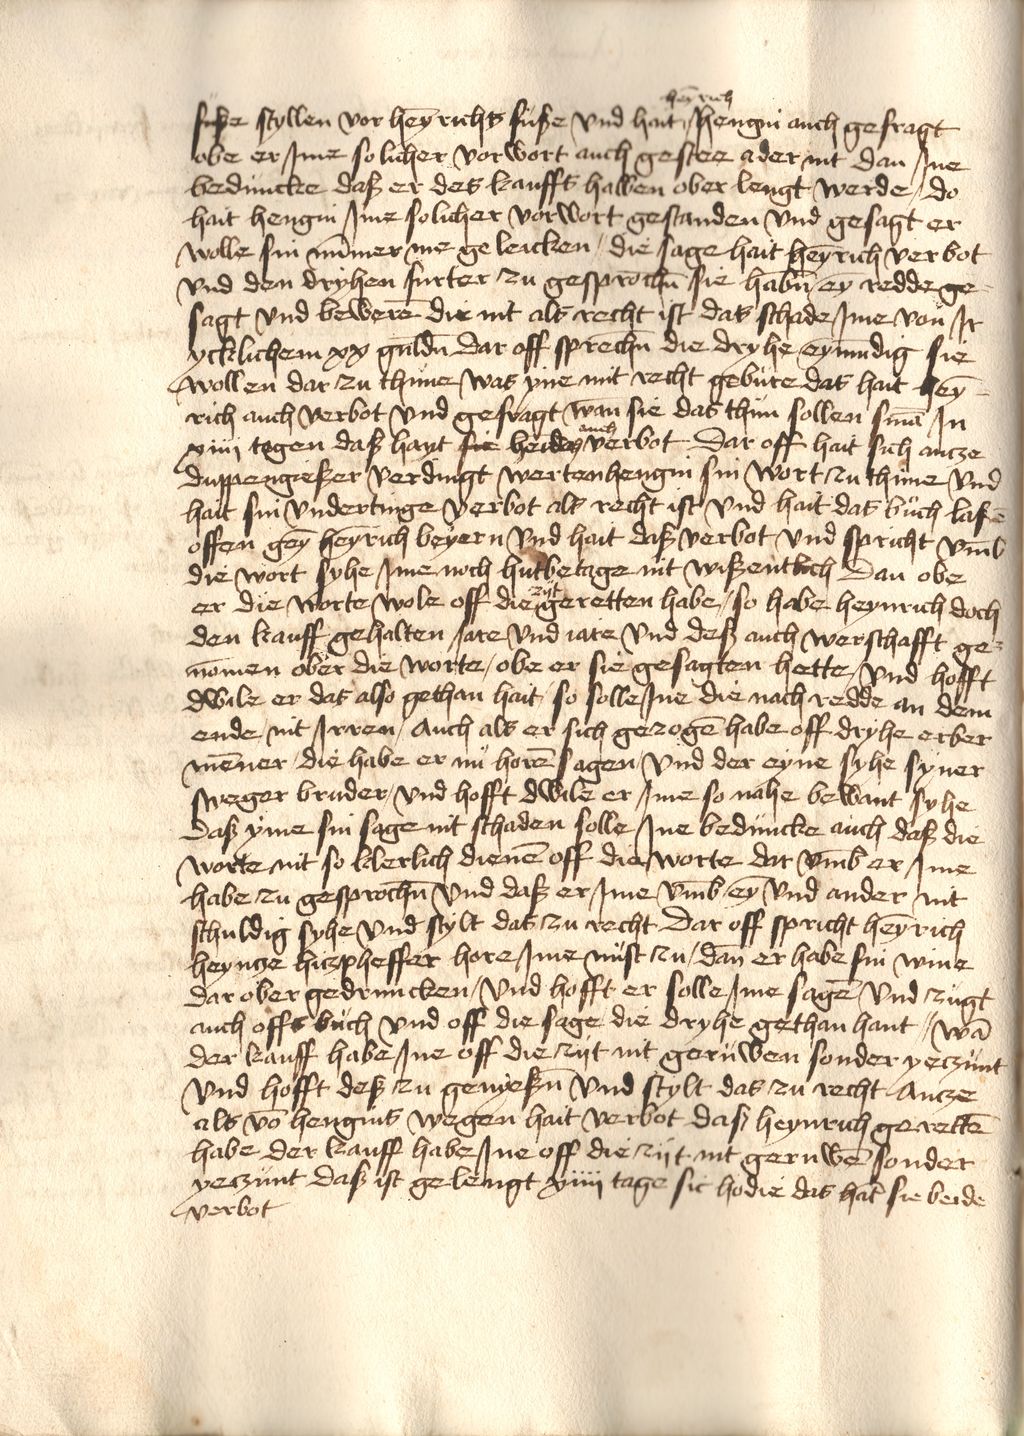 heyrich
fuße styllen vor heyrichs fuße vnd hait hengin auch gefragt
obe er Jme solicher vorwort auch gestee ader nit dan Jne
beduncke daß er des kauffs halben ober lengt werde / do
hait hengin Jme solicher vorwort gestanden vnd gesagt er
wolle sin nūmer me geleicken / die sage hait heyrich verbot
vnd den dryhen furter zu gesprochn̄ sie habn̄ ey redde ge-
sagt vnd bewerē die nit als recht ist das schade Jme von Jr
ycklichem xx guldn̄ Dar off sprechn̄ die dryhe eymūdig sie
wollen dar zu thune was yne mit recht gebure das hait hey-
rich auch verbot vnd gefragt wan sie das thun sollen sm̄a Jn
xiiii tagen daß hayt sie beide auch verbot Dar off hait sich ancze
duppengießer verdingt wertenhengin sin wort zu thune vnd
hait sin vndertinge verbot als recht ist vnd hait das buch laßē
offen gey heyrich beyern vnd hait daß verbot vnd spricht vmb
die wort syhe Jme noch hutbetage nit wißentlich Dan obe
er die worte wole off die zijt geretten habe / so habe heynrich doch
den kauff gehalten Jare vnd iare vnd deß auch werschafft ge-
nōmen ober die worte / obe er sie gesagten hette / vnd hofft
dwile er das also gethan hait so solle Jne die nach redde an dem
ende nit Jrren / Auch als er sich gezogē habe off dryhe erber
mēner / die habe er nu horē sagen / vnd der eyne syhe syner
sweger bruder / vnd hofft dwile er Jme so nahe bewant syhe
Daß yme sin sage nit schaden solle Jne beduncke auch daß die
worte nit so klerlich dienē off die worte dar vmb er Jme
habe zu gesprochn̄ vnd daß er Jme vmb ey vnd ander nit
schuldig syhe vnd stylt das zu recht Dar off spricht heyrich
heyncze hiczpheffer hore Jme nust zu / dan er habe sin wine
dar ober gedruncken / vnd hofft er solle Jme sagē vnd zugt
auch offs buch vnd off die sage die dryhe gethan hant / wā
der kauff habe Jne off die zijt nit geruwen sonder yeczunt
vnd hofft deß zu genyeßn̄ vnd stylt das zu recht Ancze
als vō hengins wegen hait verbot daß heynrich gerettē
habe der kauff habe Jne off die zijt nit geruwē sonder
yeczunt daß ist gelengt xiiii tage sic hodie das hāt sie beide
verbot